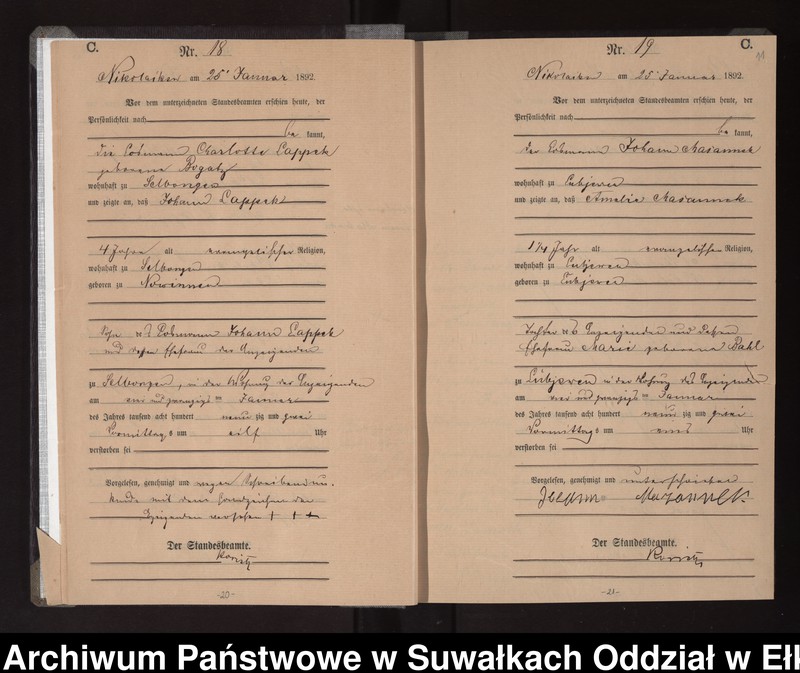 C.
Nr. 18
Nikolaiken am 25ten Januar 1892.
Vor dem unterzeichneten Standesbeamten erschien heute, der
Persönlichkeit nach
be kannt,
die Losmann Charlotte Cappek
geborene Bogatz
wohnhaft zu Selbongen
und zeigte an, daß Johann Cappek
4 Jahre alt evangelischer Religion,
wohnhaft zu Selbongen
geboren zu
Sohn des Losmann Johann Cappek
und dessen Ehefrau der Anzeigenden
zu Selbongen, in der Wohnung der Anzeigenden
am vier und zwanzigsten Januar
des Jahres tausend acht hundert neun zig und zwei
Vormittags um eilf Uhr
verstorben sei
Vorgelesen, genehmigt und wegen Schreibensun-
kunde mit dem Handzeichen der
Anzeigenden versehen + + +
Der Standesbeamte.
-20-
Nr. 19
C.
Nikolaiken am 25ten Januar 1892.
Vor dem unterzeichneten Standesbeamten erschien heute, der
Persönlichkeit nach
be kannt,
der Losmann Johann Masannek
wohnhaft zu Lubjewen
und zeigte an, daß Amelie Masannek
1¼ Jahr alt evangelischer Religion,
wohnhaft zu Lubjewen
geboren zu Lubjewen
Tochter des Anzeigenden und dessen
Ehefrau Marie geborene Pahl
zu Lubjewen in der Wohnung des Anzeigenden
am vier und zwanzigsten Januar
des Jahres tausend acht hundert neun zig und zwei
Vormittags um eins Uhr
verstorben sei
Vorgelesen, genehmigt und unterschrieben
Johann Mazannek
Der Standesbeamte.
-21-
Archiwum Państwowe w Suwałkach Oddział w Ełk